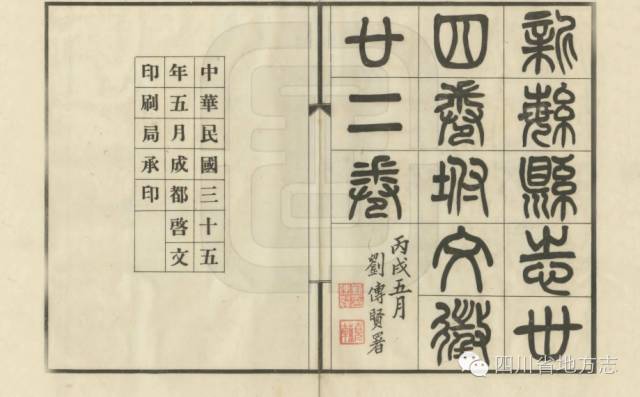 新繁縣志卅
四卷坿文徵
廿二卷
丙戌五月
劉傳賢署
中華民國三十五
年五月成都啓文
印刷局承印
四川省地方志